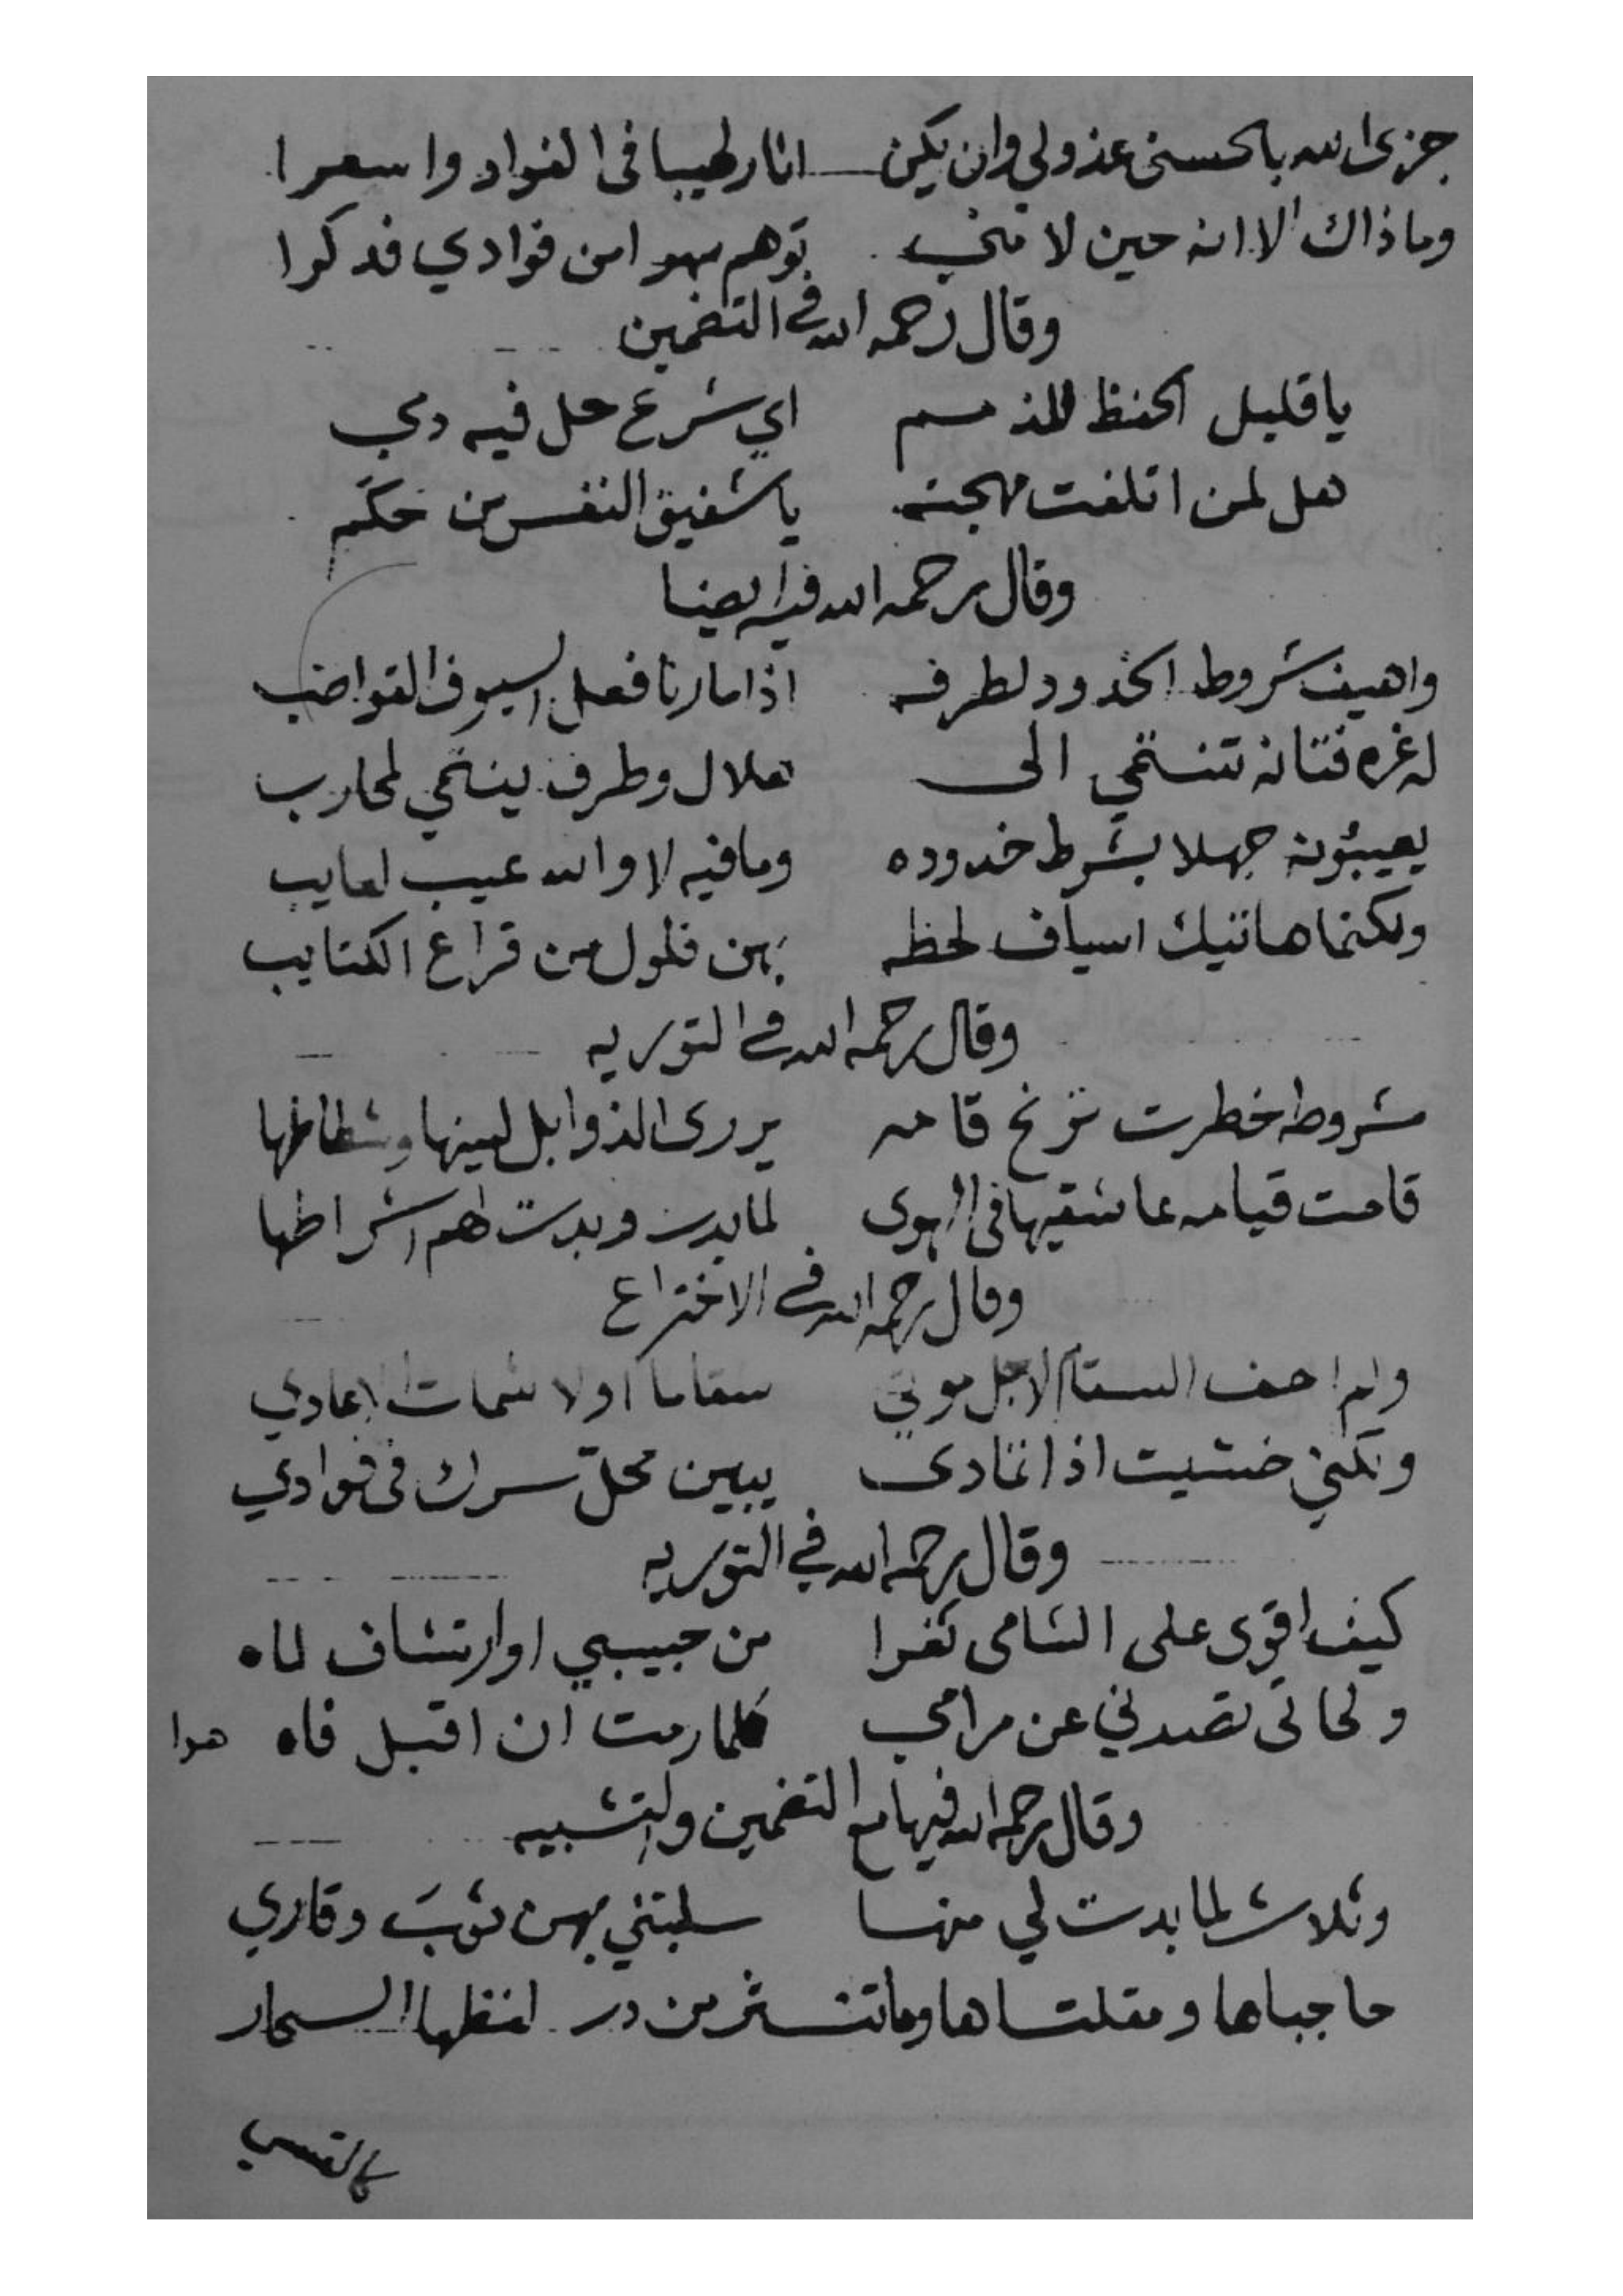 جزى الله بالحسنى عذولي وان يكن انار لهيبا فى الفواد واسعرا
وما ذاك الا انه حين لا مني توهم سهوا من فوادي فذكرا
وقال رحمه الله في التضمين
يا قليل الحفظ للذمم اي شرع حل فيه دمي
هل لمن اتلفت مهجته يا شفيق النفس من حكم
وقال رحمه الله فيه ايضا
واهيف شروط الخدود لطرفه اذا ما رنا فعل السيوف القواضب
له غره فتانه تنتمي الى هلال وطرف ينتمي لمحارب
يعيبونه جهلا بشرط خدوده وما فيه لا والله عيب لعايب
ولكنما هاتيك اسياف لحظه بهن فلول من قراع الكتايب
وقال رحمه الله في التوريه
مشروطه خطرت ترنح قامه يزرى الذوابل لينها وشطاطها
قامت قيامه عاشقيها فى الهوى لما بدت وبدت لهم اشراطها
وقال رحمه الله في الاختراع
ولم اخف السقام لاجل موتي سقاما او لا شمات اعادي
ولكني خشيت اذا تمادى يبين محل سرك فى فوادي
وقال رحمه الله في التوريه
كيف اقوى على الشامى ثغرا من حبيبي او ارتشاف لماه
ولحاتى تصدني عن مرامي كلما رمت ان اقبل فاه هوا
وقال رحمه الله فيها مع التضمين والتشبيه
وثلاث لما بدت لي منها سلبتني بهن ثوب وقاري
حاجباها ومقلتاها وما تنثر من در لفظها السحار
كالقسي